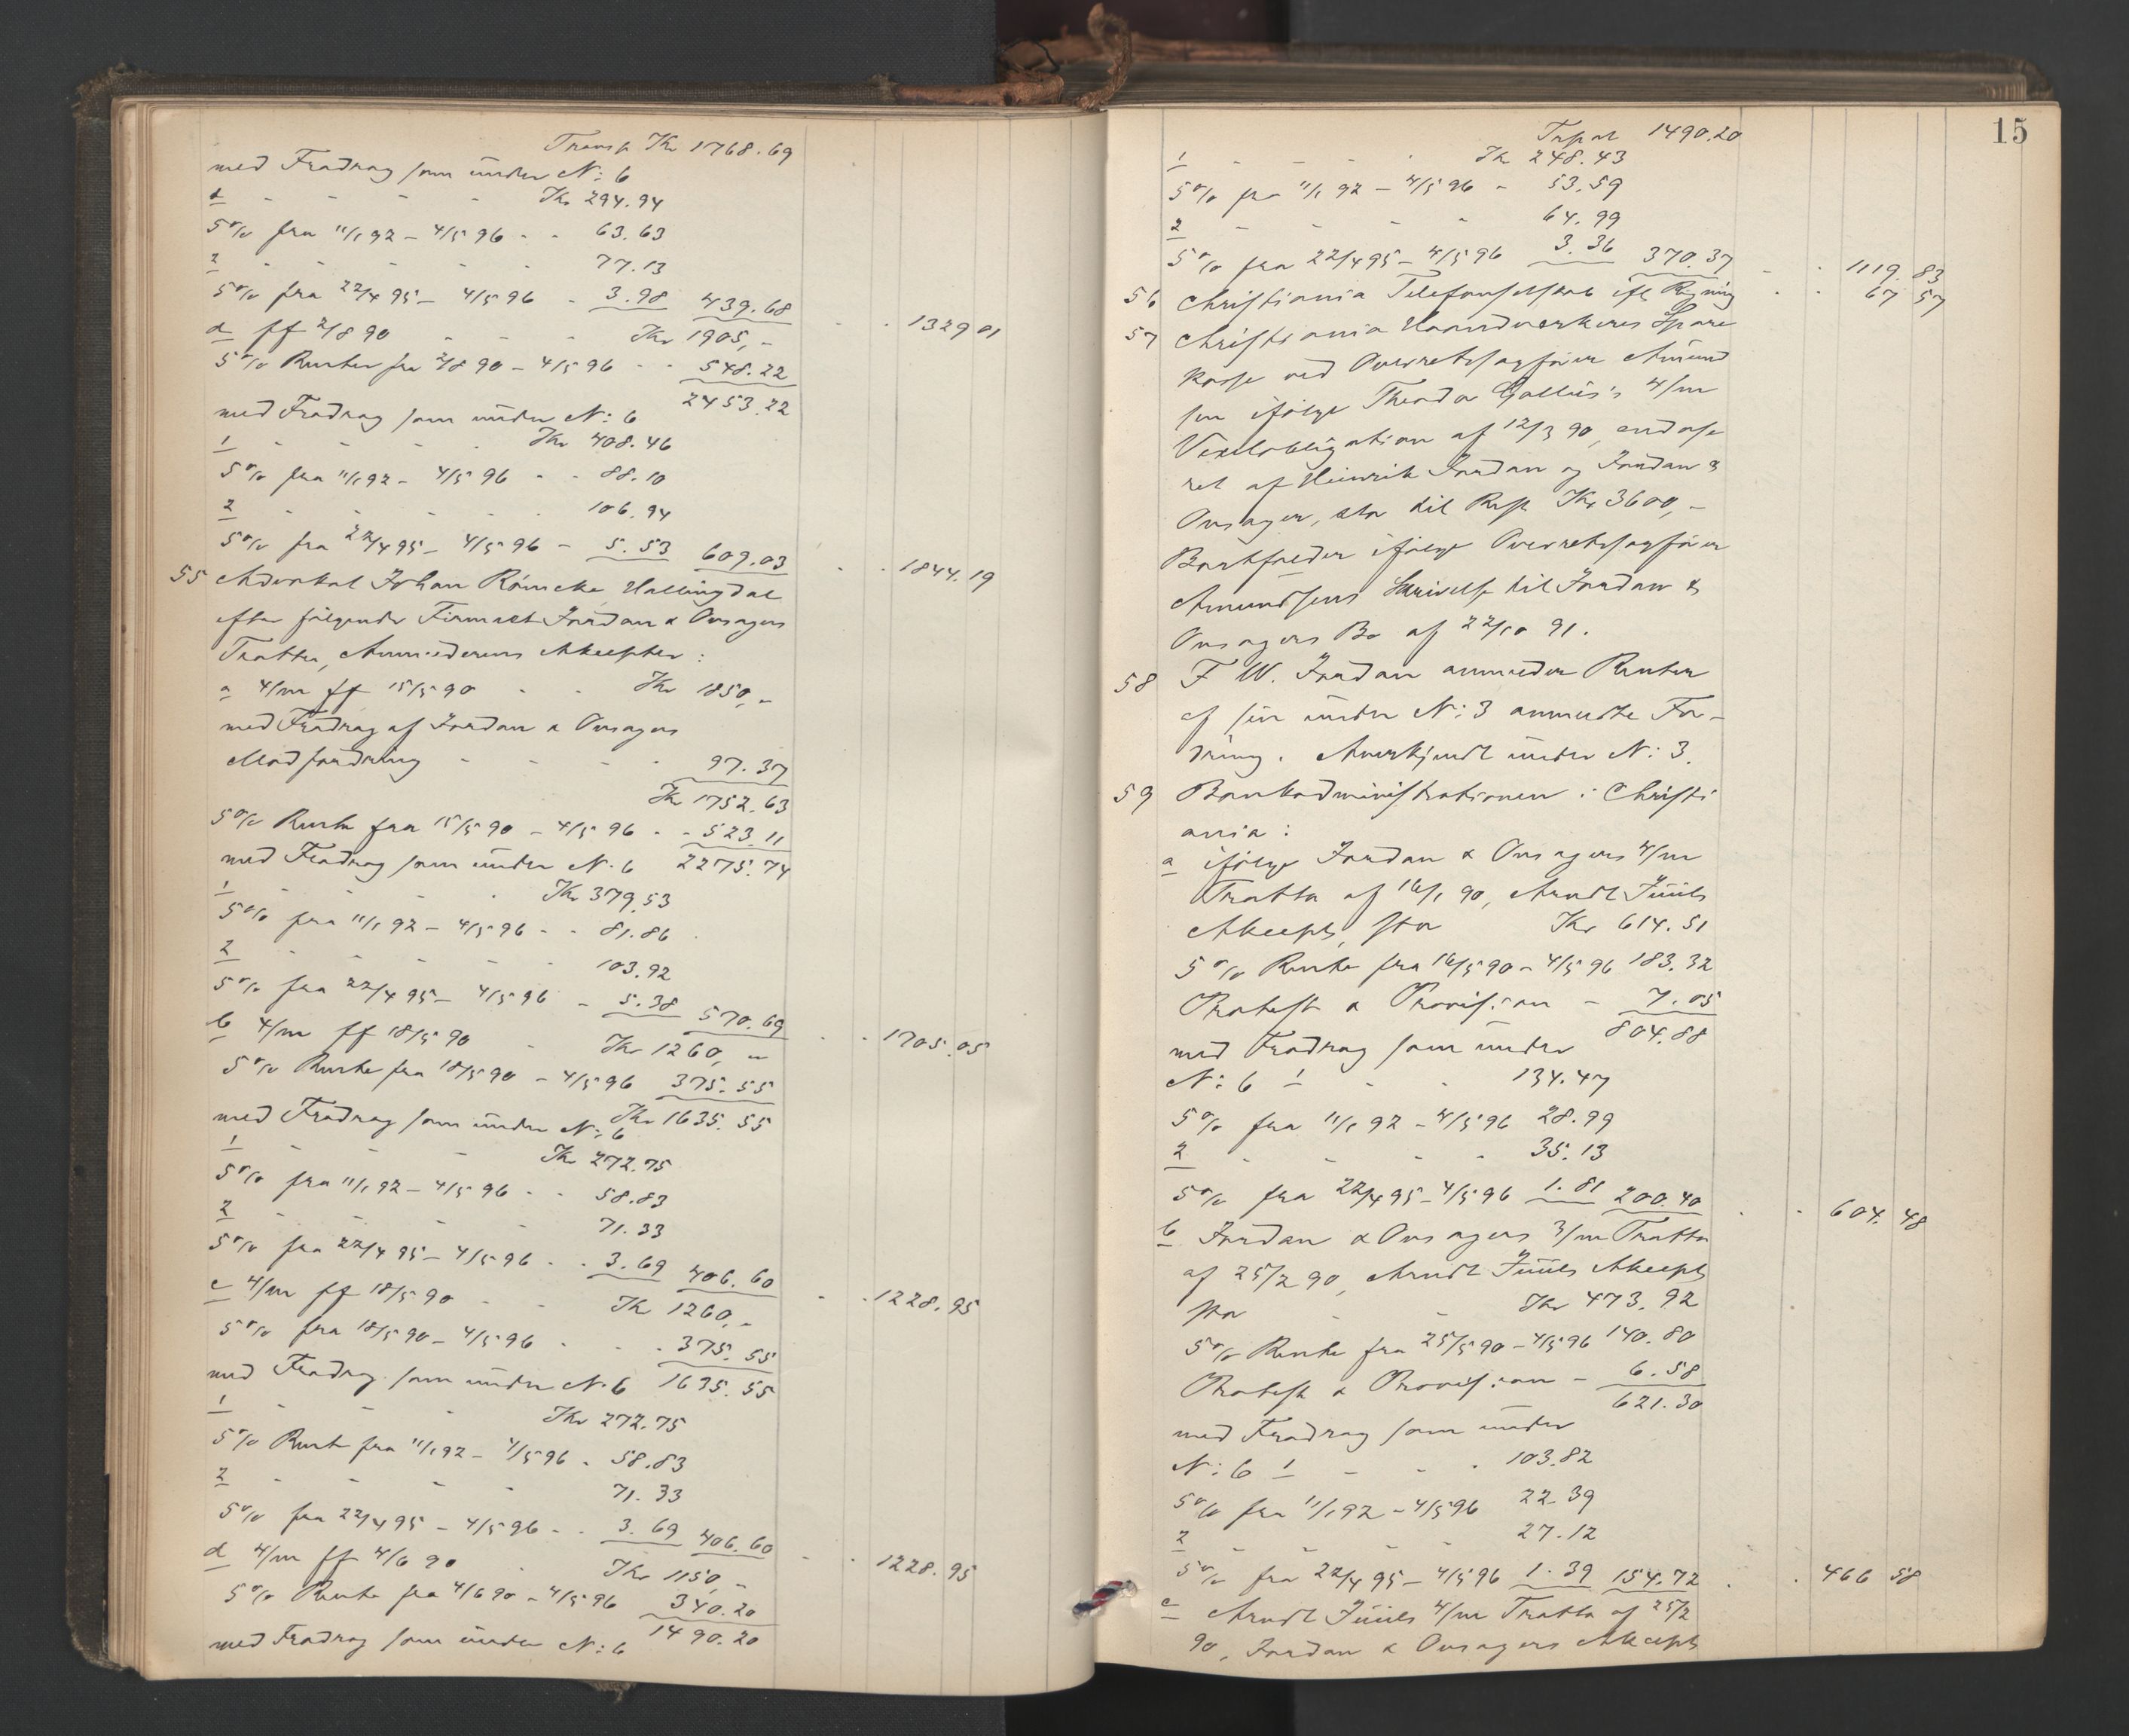 Transp Kr 1768.69
med Fradrag som under N: 6
1 - - - - - Kr. 294.94
5% fra 11/1 92 - 4/5 96 - - 63.63
2 - - - - - 77.13
5% fra 22/4 95 - 4/5 96 - 3.98 439.68 - - 1329 01
d ff 2/8 90 - - - Kr 1905,-
5% Renter fra 2/8 90 - 4/5 96 - - 548.22
2453.22
med Fradrag som under N: 6
1 - - - - Kr 408.46
5% fra 11/1 92 - 4/5 96 - - 88.10
2 - - - - - 106.94
5% fra 22/4 95 - 4/5 96 - 5.53 609.03 - - 1844.19
55 Advokat Johan Hallingdal
efter følgende Firmaet Jordan & Onsagers
Tratter, Anmelderens Akcepter:
a 4/m ff 15/5 90 - - Kr 1850,-
med Fradrag af Jordan & Onsagers
Modfordring - - - - 97.37
Kr 1752.63
5% Rente fra 15/5 90 - 4/5 96 - - 523.11
med Fradrag som under N. 6 2275.74
1 - - - - Kr 379.53
5% fra 11/1 92 - 4/5 96 - - 81.86
2 - - - - - 103.92
5% fra 22/4 95 - 4/5 96 - 5.38 570.69 - - 1705.05
b 4/m ff 18/5 90 - Kr 1260,-
5% Rente fra 18/5 90 - 4/5 96 375.55
Kr 1635.55
med Fradrag som under N: 6
1 - - - Kr 272.75
5% fra 11/1 92 - 4/5 96 - - 58.83
2 - - - - 71.33
5% fra 22/4 95 - 4/5 96 - - 3.69 406.60 - - 1228.95
c 4/m ff 18/5 90 - - Kr 1260,-
5% fra 18/5 90 - 4/5 96 - - - 375.55
med Fradrag som under N. 6 1635.55
1 - - - Kr 272.75
5% Rente fra 11/1 92 - 4/5 96 - 58.83
2 - - - - 71.33
5% fra 22/4 95 - 4/5 96 - - 3.69 406.60 - - 1228.95
d 4/m ff 4/6 90 - Kr 1150,-
5% Rente fra 4/6 90 - 4/5 96 340.20
1490.20
med Fradrag som under N: 6
15
Trspt 1490.20
1 - - - - Kr 248.43
5% fra 11/1 92 - 4/5 96 - 53.59
2 - - - - 64.99
5% fra 22/4 95 - 4/5 96 3.36 370.37 - - 1119.83
56 Christiania Telefonselskab ifl Regning - - 67 57
57 Christiania Haandværkeres Spare
kasse ved Overretssagfører Amund
sen ifølge Theodor 4/m
Vexelobligation af 12/3 90, endosse
ret af Heinrik Jordan og Jordan &
Onsager, stor til Rest Kr 3600,-
Bortfalder ifølge Overretssagfører
Amundsens Skrivelse til Jordan &
Onsagers Bo af 22/10 91.
58 F W. Jordan anmelder Renter
af sin under N: 3 anmeldte For-
dring. Anerkjendt under N: 3.
59 Bankadministrationen i Christi
ania:
a ifølge Jordan & Onsagers 4/m
Tratta af 16/1 90, Arndt Juuls
Akcept, stor Kr 614.51
5% Rente fra 16/5 90 - 4/5 96 183.32
Protest & Provision - 7.05
804.88
med Fradrag som under
N: 6 1 - - 134.47
5% fra 11/1 92 - 4/5 96 28.99
2 - - - - 35.13
5% fra 22/4 95 - 4/5 96 1.81 200.40 - - 604.48
b Jordan & Onsagers 3/m Tratta
af 25/2 90, Arndt Juuls Akcept
stor - - Kr 473.92
5% Rente fra 25/5 90 - 4/5 96 140.80
Protest & Provision - 6.58
621.30
med Fradrag som under
N: 6 1 - - - 103.82
5% fra 11/1 92 - 4/5 96 22.39
2 - - - - 27.12
5% fra 22/4 95 - 4/5 96 1.39 154.72 - - 466 58
c Arndt Juuls 4/m Tratta af 25/2
90, Jordan & Onsagers Akcept